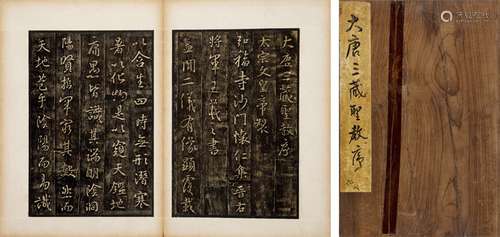 大唐三藏聖教序
太宗文皇帝製
弘福寺沙門懷仁集晉右
將軍王羲之書
蓋聞二儀有像顯覆載
以含生四時無形潛寒
暑以化物是以窺天鑑地
庸愚皆識其端明陰洞
陽賢哲罕窮其數然而
天地苞乎陰陽而易識
大唐三藏聖教序